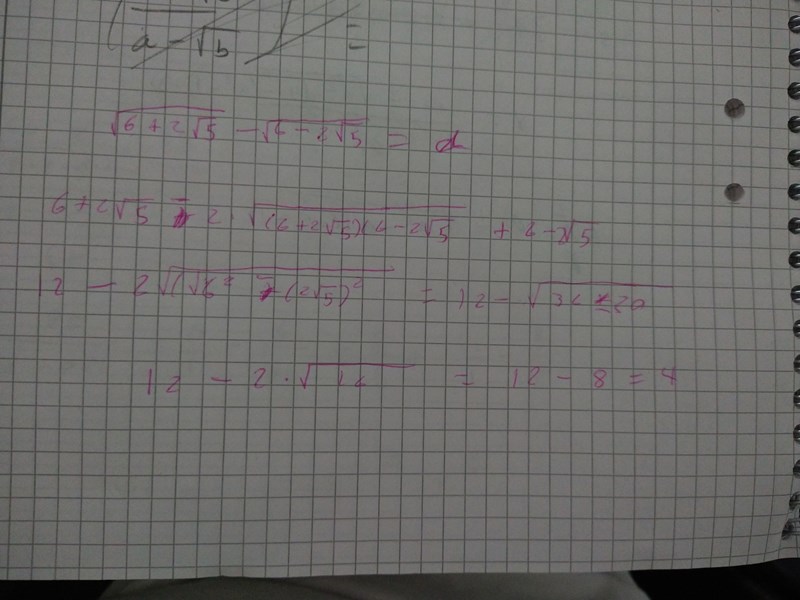 a - √b =
√(6 + 2√5) - √(6 - 2√5) = d
6 + 2√5 - 2 · √((6 + 2√5)(6 - 2√5) + 6 - 2√5
12 - 2√((√6² - (2√5)² = 12 - √(36 - 20)
12 - 2 · √16 = 12 - 8 = 4